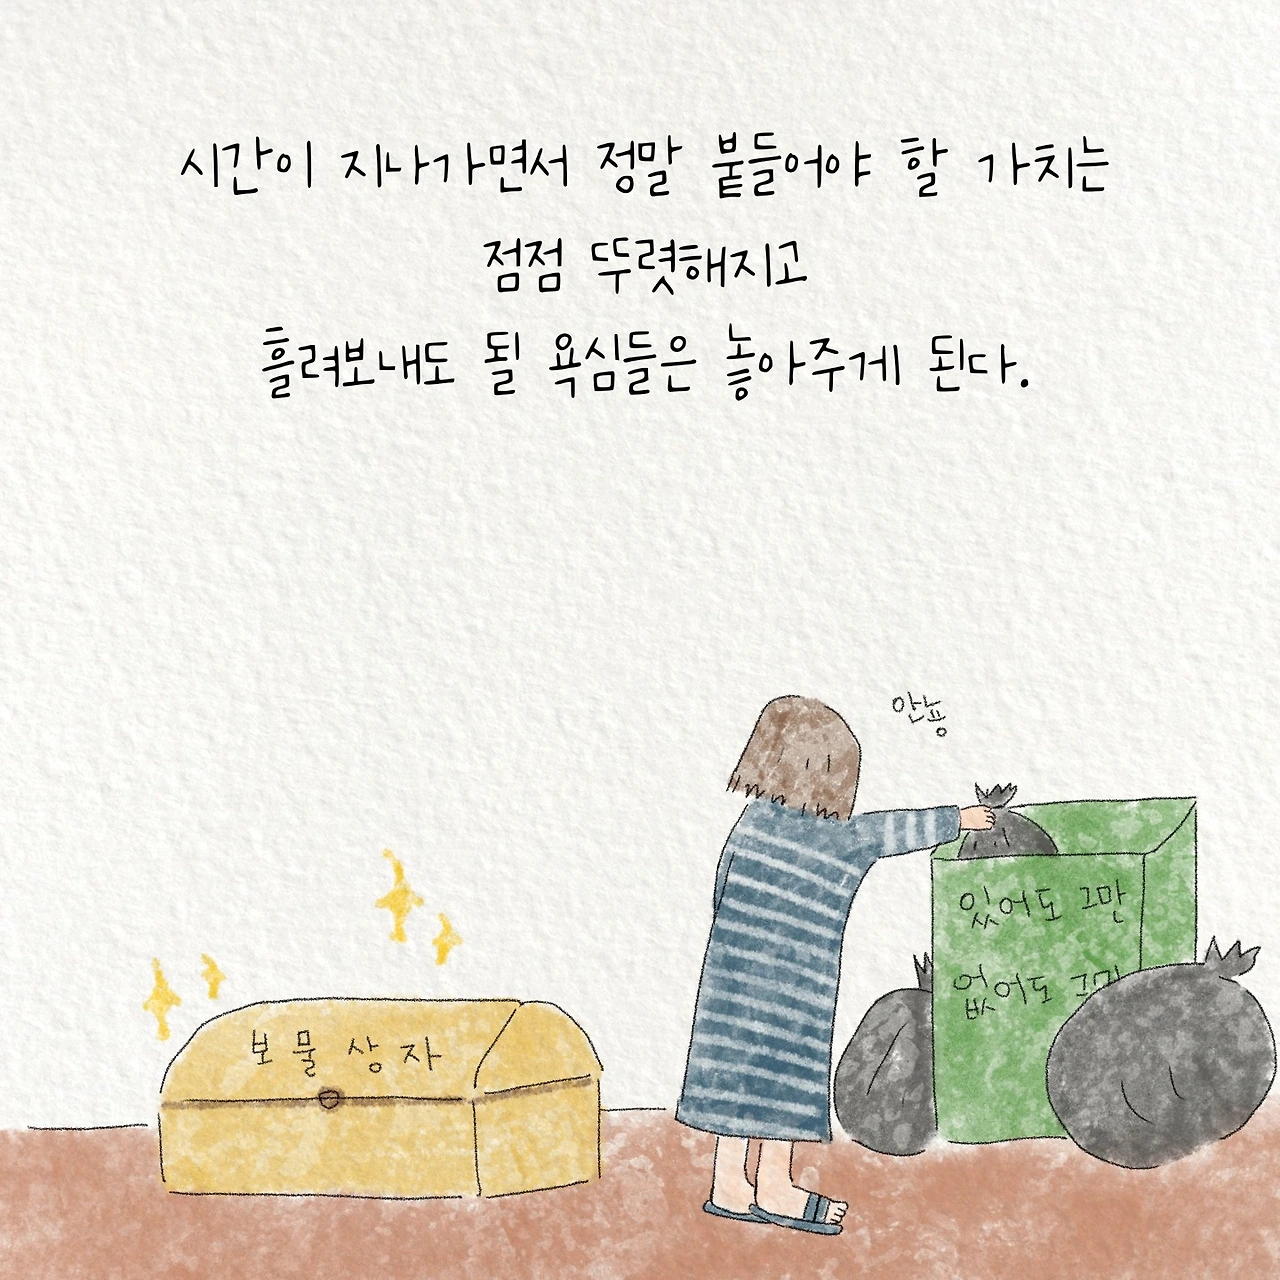 시간이 지나가면서 정말 붙들어야 할 가치는
점점 뚜렷해지고
흘려보내도 될 욕심들은 놓아주게 된다.
안뇽
있어도 그만
없어도 그만
보물상자